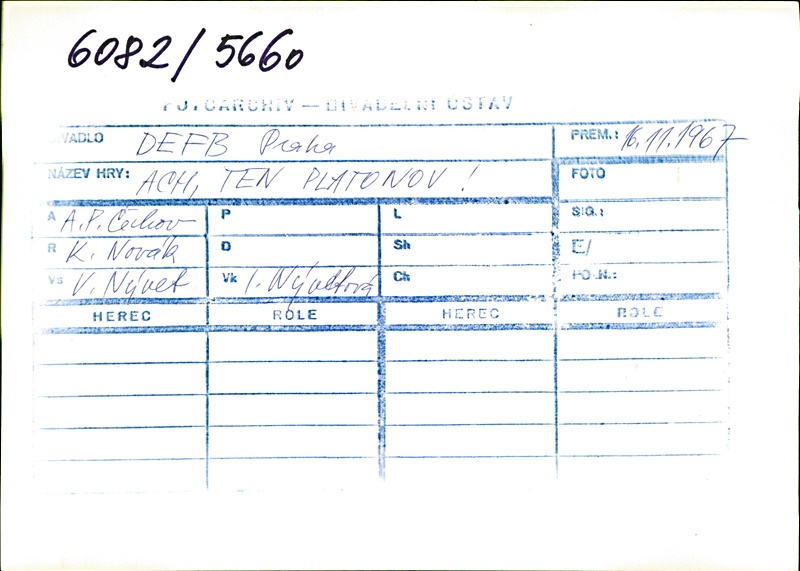 6082/5660
FOTOARCHIV — DIVADELNÍ ÚSTAV
DIVADLO DEFB Praha PREM.: 16.11.1967
NÁZEV HRY: ACH, TEN PLATONOV! FOTO
A A.P. Čechov P L SIG.:
R K. Novák D Sh E/
Vs V. Nývlt Vk I. Nývltová Ch PO.N.:
HEREC ROLE HEREC ROLE